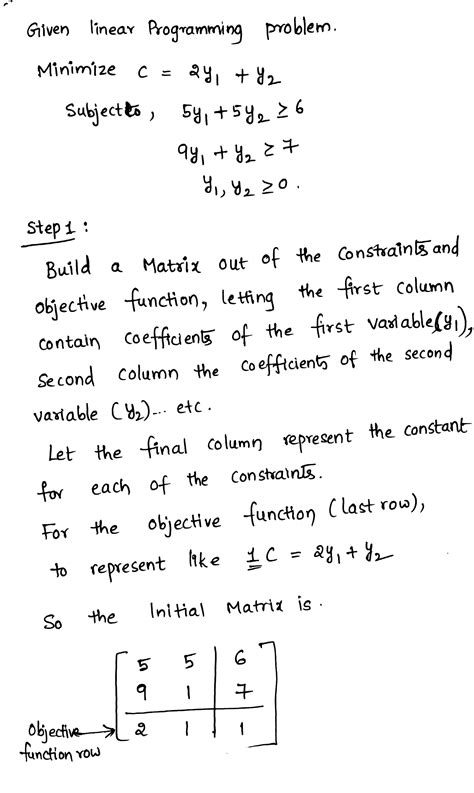 Given linear Programming problem.
Minimize C = 2y₁ + y₂
Subject to, 5y₁ + 5y₂ ≥ 6
9y₁ + y₂ ≥ 7
y₁, y₂ ≥ 0.
Step 1 :
Build a Matrix out of the constraints and
objective function, letting the first column
contain coefficients of the first variable (y₁),
Second column the coefficients of the second
variable (y₂)... etc.
Let the final column represent the constant
for each of the constraints.
For the objective function (last row),
to represent like 1 C = 2y₁ + y₂
So the Initial Matrix is.
5 5 | 6
9 1 | 7
2 1 | 1
Objective → function row